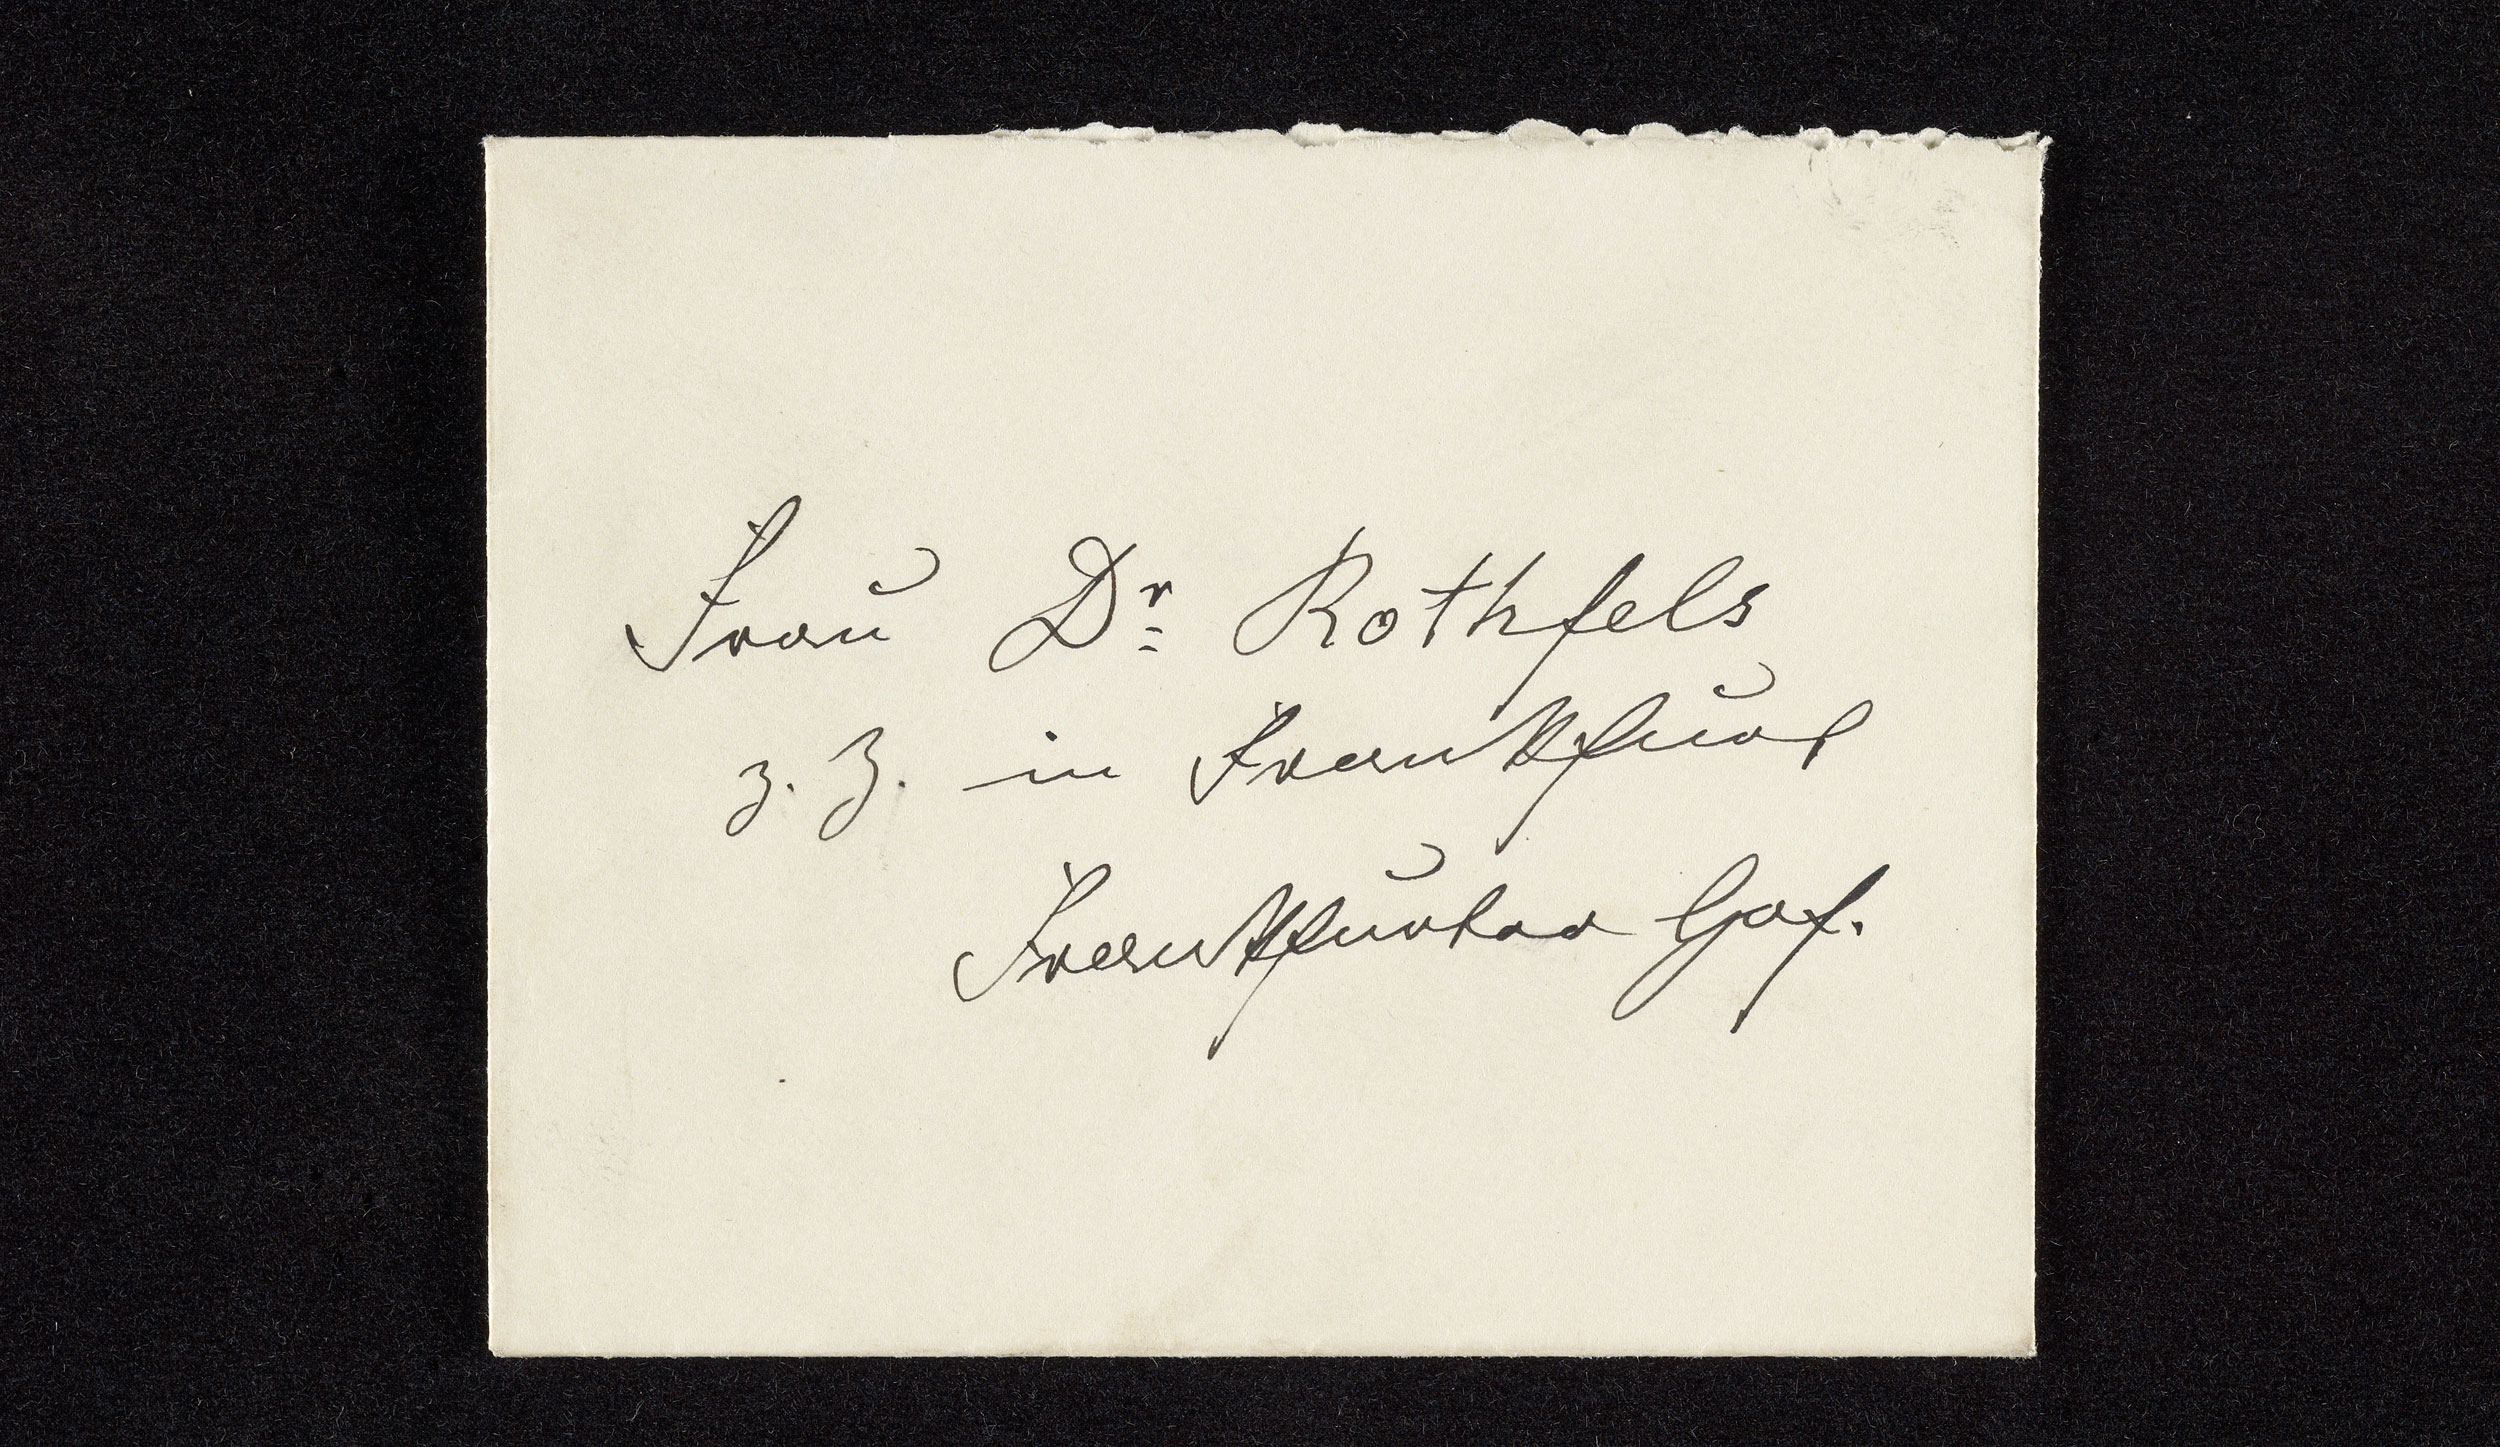 Frau Dr. Rothfels
z. Z. in Frankfurt
Frankfurter Hof.